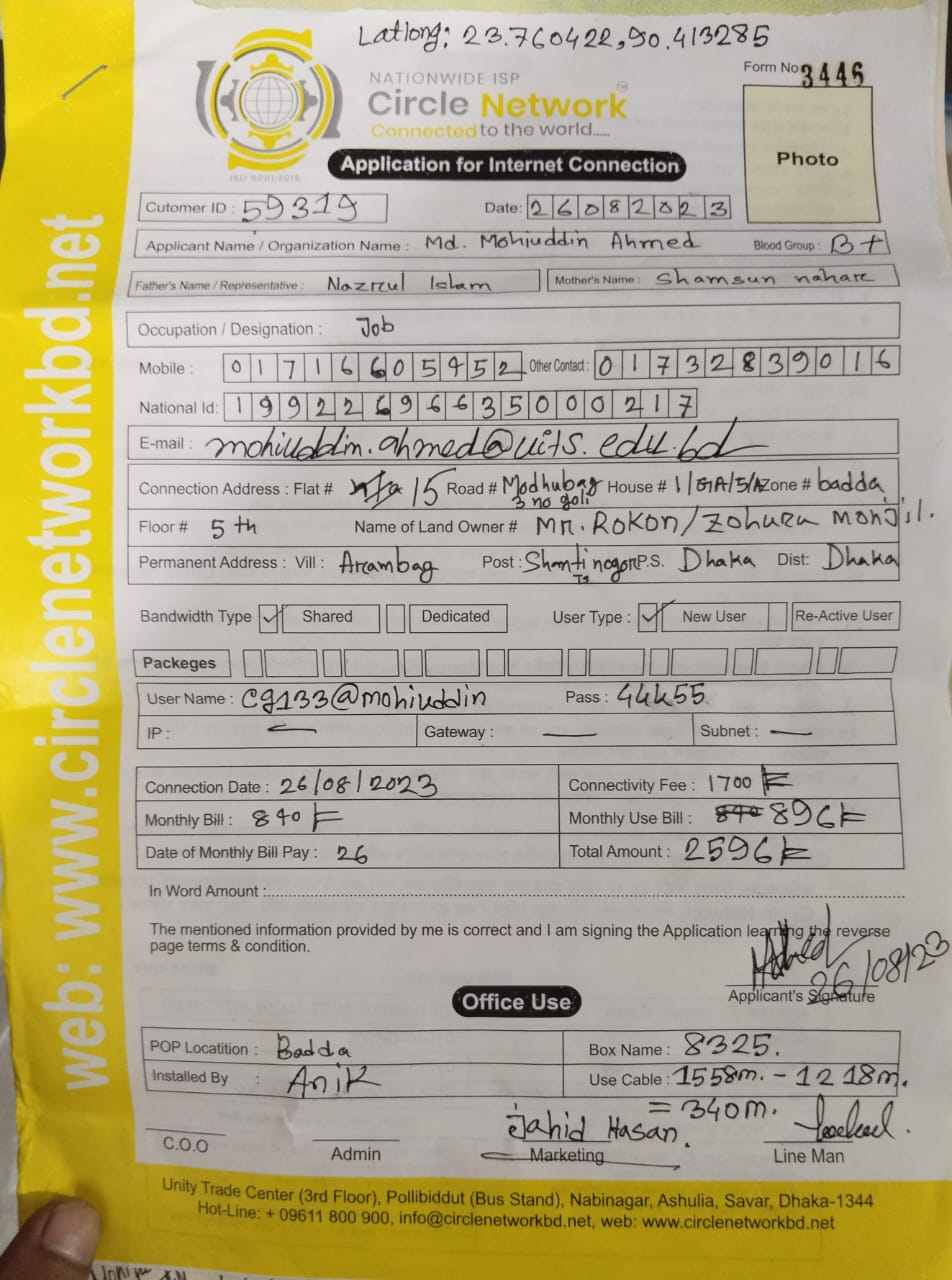 Latlong: 23.760422, 90.413285
Form No 3446
NATIONWIDE ISP
Circle Network
TM
Connected to the world.....
ISO 9001:2015
Photo
Application for Internet Connection
Cutomer ID : 59319 Date: 26082023
Applicant Name / Organization Name : Md. Mohiuddin Ahmed Blood Group : B+
Father's Name / Representative : Nazrul Islam Mother's Name : Shamsun nahar
Occupation / Designation : Job
Mobile : 01716605952 Other Contact : 01732839016
National Id: 19922696635000217
E-mail : mohiuddin.ahmed@uits.edu.bd
Connection Address : Flat # /5 Road # Modhubag 3 no goli House # 1/GA/5/A Zone # badda
Floor # 5th Name of Land Owner # Mr. Rokon/Zohura monjil.
Permanent Address : Vill : Arambag Post : Shantinogor P.S. Dhaka Dist: Dhaka
Bandwidth Type ✓ Shared Dedicated User Type : ✓ New User Re-Active User
Packeges
User Name : cg133@mohiuddin Pass : 44455
IP : — Gateway : — Subnet : —
Connection Date : 26/08/2023 Connectivity Fee : 1700
Monthly Bill : 840 Monthly Use Bill : 840 896
Date of Monthly Bill Pay : 26 Total Amount : 2596
In Word Amount :
The mentioned information provided by me is correct and I am signing the Application learning the reverse
page terms & condition.
26/08/23
Applicant's Signature
Office Use
POP Locatition : Badda Box Name : 8325.
Installed By : Anik Use Cable : 1558m. - 1218m.
= 340m.
Jahid Hasan.
C.O.O Admin Marketing Line Man
Unity Trade Center (3rd Floor), Pollibiddut (Bus Stand), Nabinagar, Ashulia, Savar, Dhaka-1344
Hot-Line: + 09611 800 900, info@circlenetworkbd.net, web: www.circlenetworkbd.net
web: www.circlenetworkbd.net